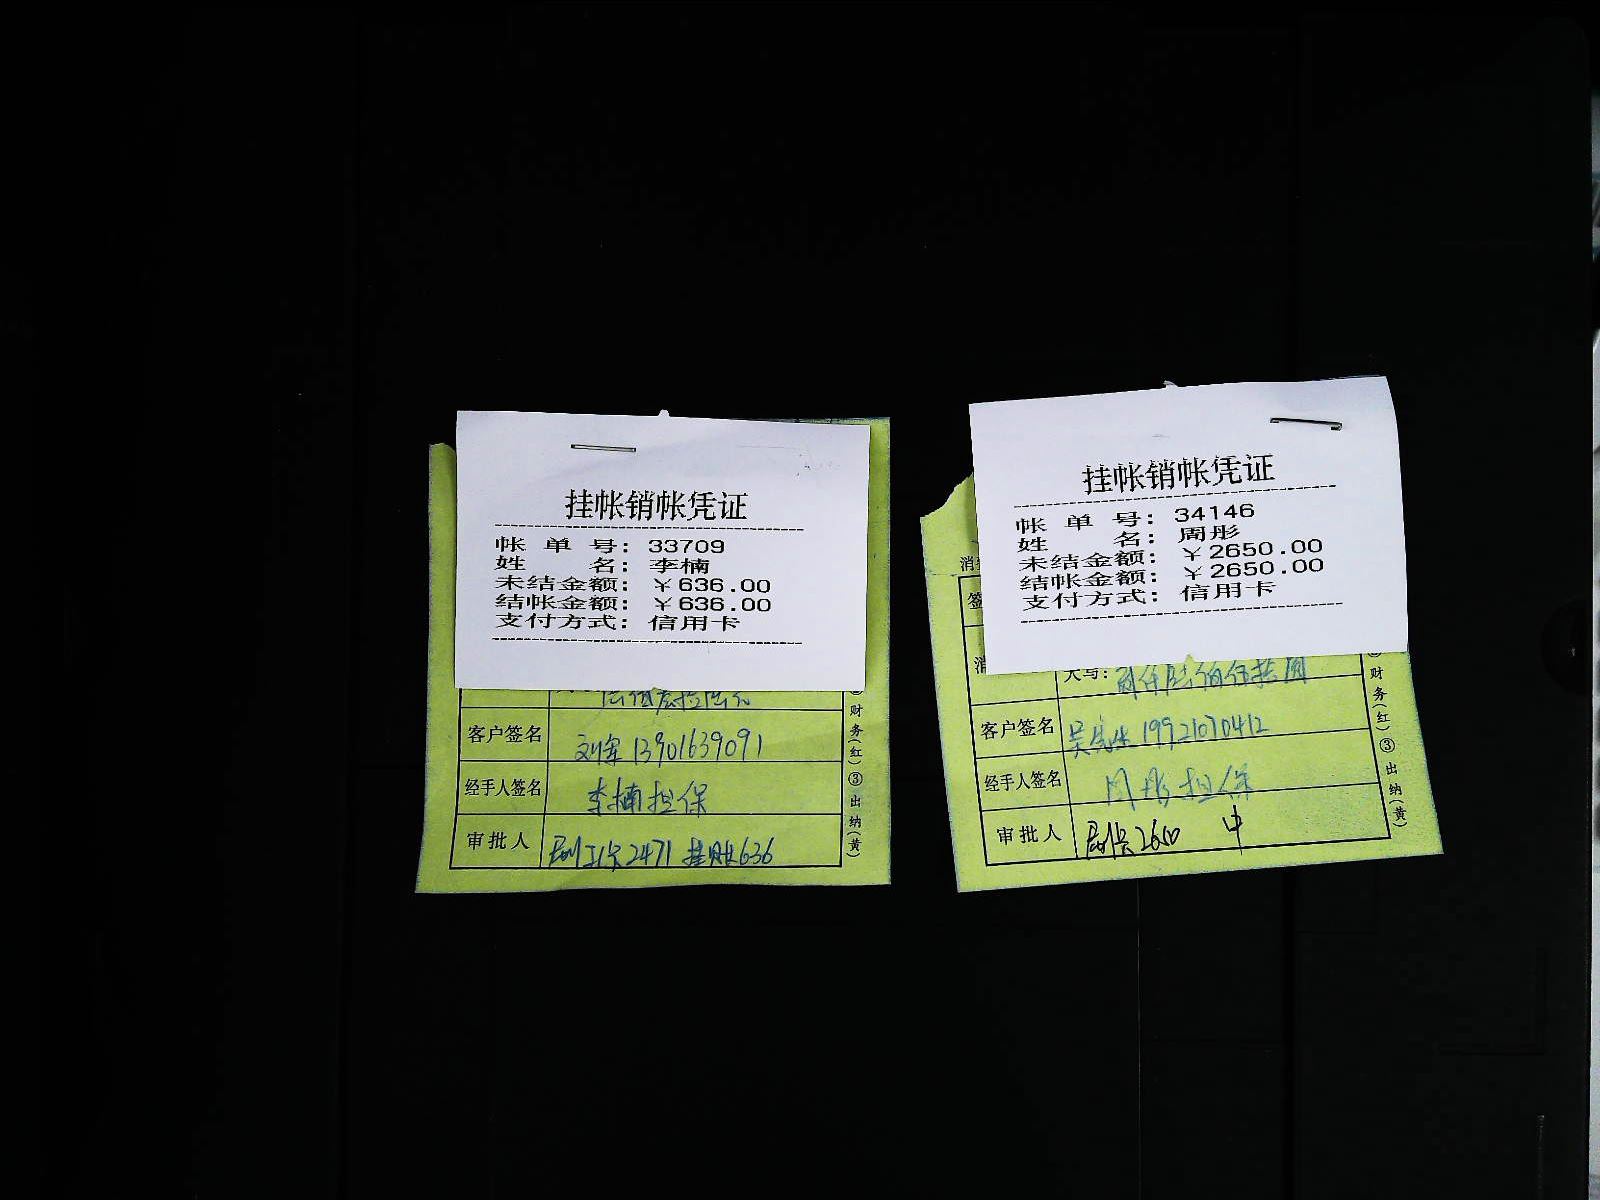 挂帐销帐凭证
帐单号：33709
姓名：李楠
未结金额：￥636.00
结帐金额：￥636.00
支付方式：信用卡
客户签名 刘军 13901639091
经手人签名 李楠担保
审批人 刷工卡2471 挂账636
财务(红)③出纳(黄)
挂帐销帐凭证
帐单号：34146
姓名：周彤
未结金额：￥2650.00
结帐金额：￥2650.00
支付方式：信用卡
大写：贰仟陆佰伍拾圆
客户签名 吴先生 19921070412
经手人签名 周彤担保
审批人 刷卡2650 中
财务(红)③出纳(黄)